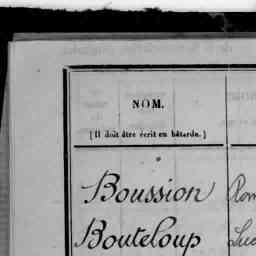 NOM.
[Il doit être écrit en bâtarde.]
Boussion
Bouteloup